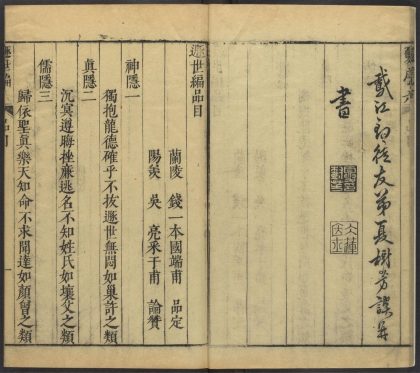 戲江釣徒友弟夏樹芳謨并
書
遯世編品目
蘭陵 錢一本國端甫 品定
陽羨 吳 亮采于甫 論贊
神隱一
獨抱龍德確乎不拔遯世無悶如巢許之類
真隱二
沉冥遵晦挫廉逃名不知姓氏如壤父之類
儒隱三
歸依聖真樂天知命不求聞達如顏曾之類
遯世編
品目
一